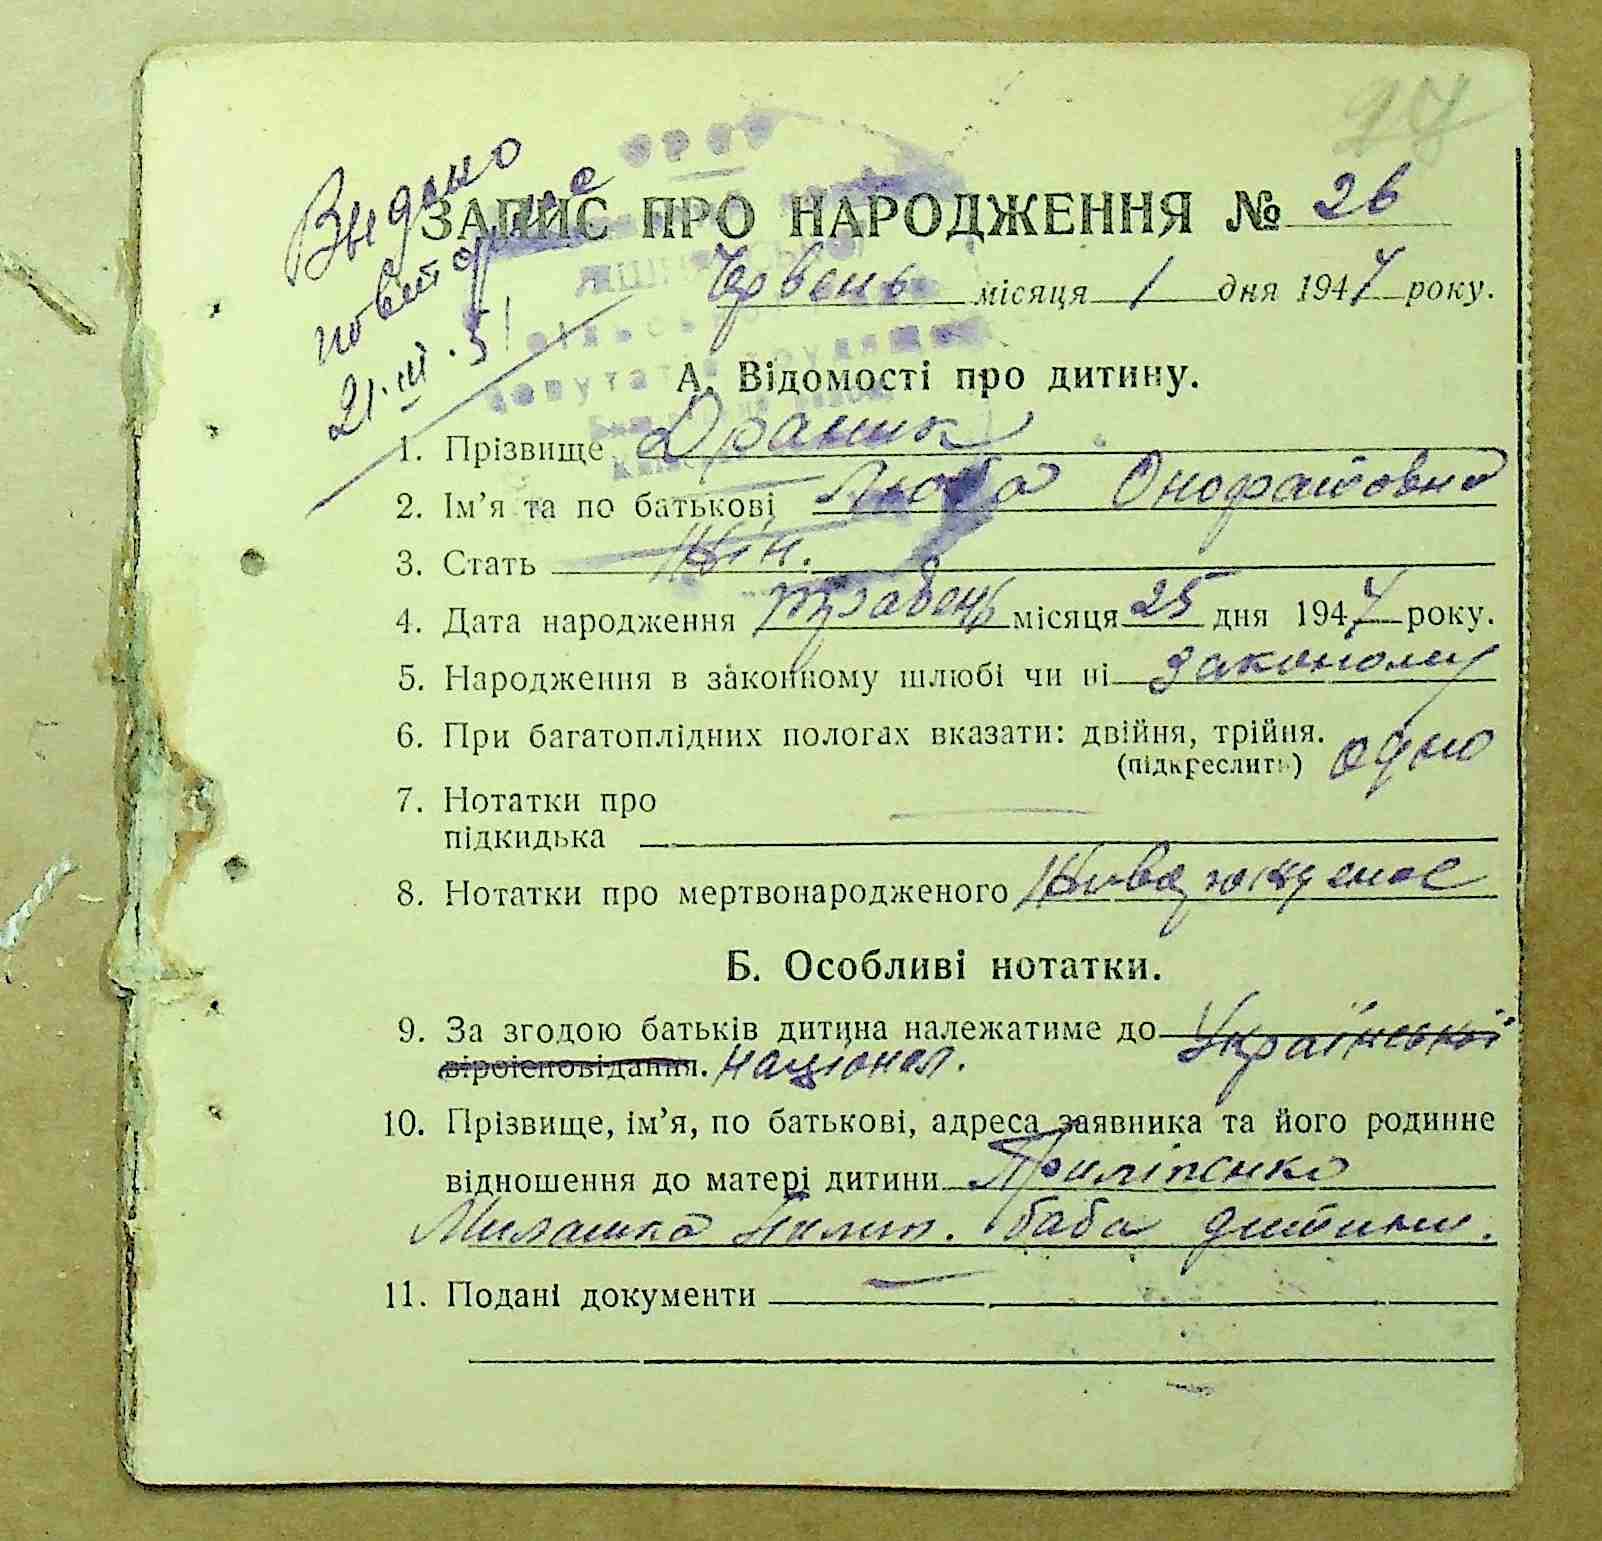 27
Выдано
повторное
21.III.51
ЗАПИС ПРО НАРОДЖЕННЯ № 26
Червень місяця 1 дня 1947 року.
А. Відомості про дитину.
1. Прізвище Драник
2. Ім'я та по батькові Люба Онофратовна
3. Стать Жін.
4. Дата народження травень місяця 25 дня 1947 року.
5. Народження в законному шлюбі чи ні законому
6. При багатоплідних пологах вказати: двійня, трійня. одно
(підкреслить)
7. Нотатки про
підкидька
8. Нотатки про мертвонародженого
Б. Особливі нотатки.
9. За згодою батьків дитина належатиме до Української
віроісповідання. націонал.
10. Прізвище, ім'я, по батькові, адреса заявника та його родинне
відношення до матері дитини Приліпенко
Милашка Пилип. баба дитини.
11. Подані документи